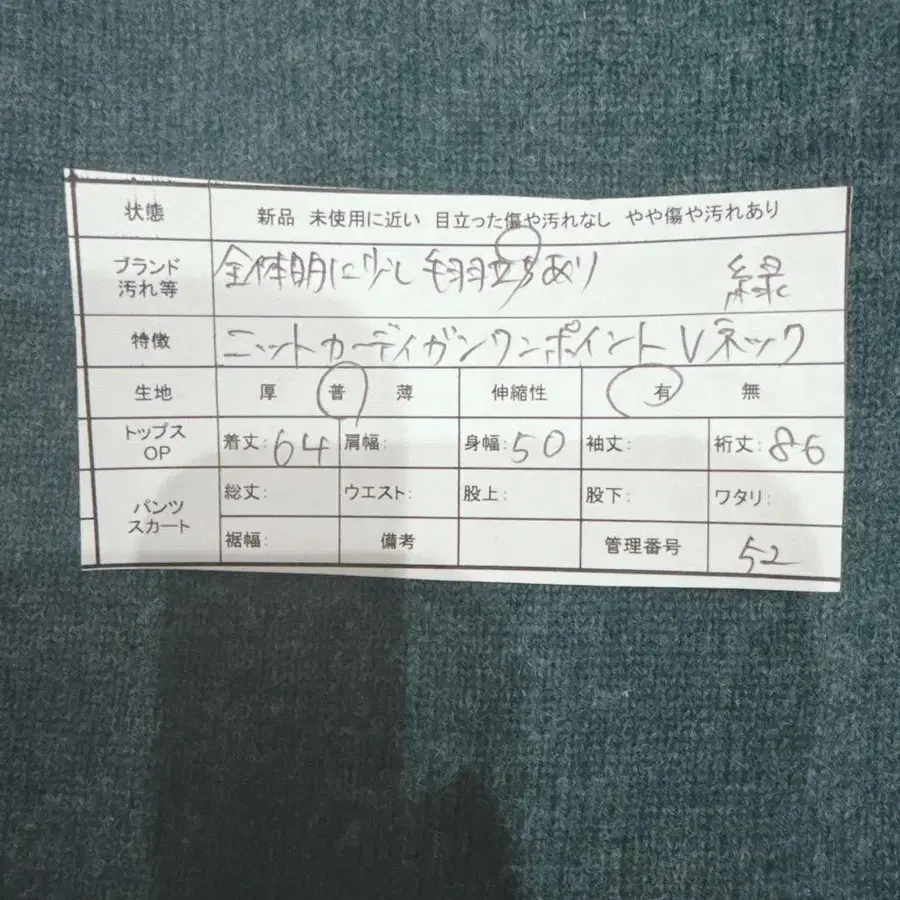 状態 新品 未使用に近い 目立った傷や汚れなし やや傷や汚れあり
ブランド 汚れ等 全体的に少し毛羽立ちあり 緑
特徴 ニットカーディガンワンポイント Vネック
生地 厚 普 薄 伸縮性 有 無
トップス OP 着丈:64 肩幅: 身幅:50 袖丈: 裄丈:86
パンツ スカート 総丈: ウエスト: 股上: 股下: ワタリ:
裾幅: 備考 管理番号 52